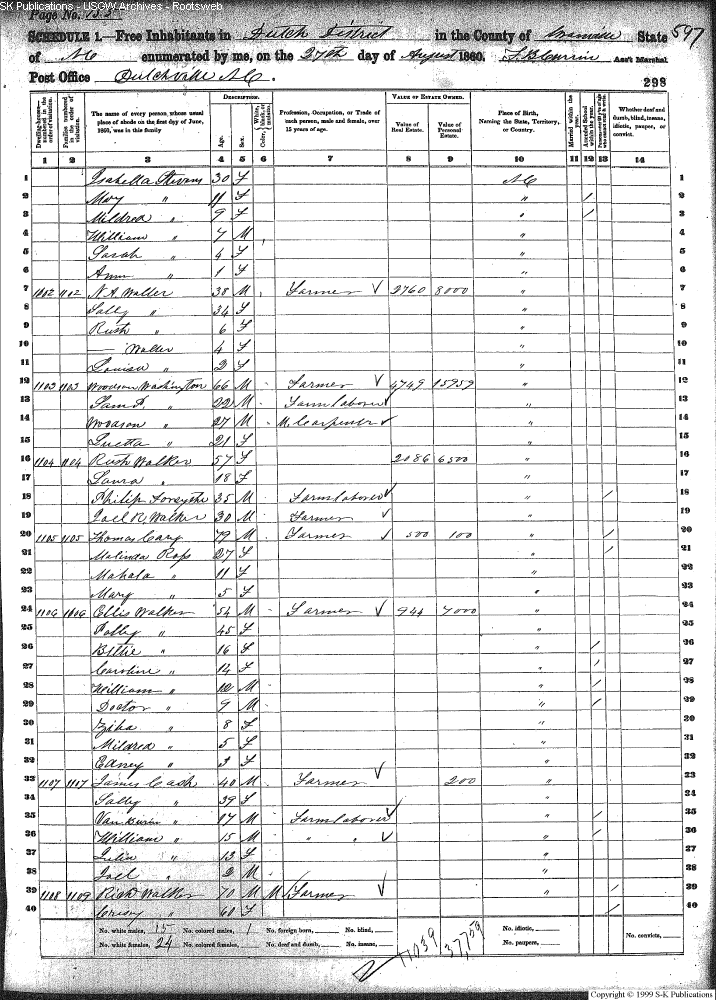 SK Publications - USGW Archives - Rootsweb
Page No. 
SCHEDULE 1.—Free Inhabitants in Dutch District in the County of Granville State 597
of NC enumerated by me, on the 27th day of August 1860. Ass't Marshal
Post Office Dutchville N.C. 298
Dwelling-house— numbered in the order of visitation. Families numbered in the order of visitation. The name of every person whose usual place of abode on the first day of June, 1860, was in this family DESCRIPTION. Age. Sex. Color, White, black, or mulatto. Profession, Occupation, or Trade of each person, male and female, over 15 years of age. VALUE OF ESTATE OWNED. Value of Real Estate. Value of Personal Estate. Place of Birth, Naming the State, Territory, or Country. Married within the year. Attended School within the year. Whether deaf and dumb, blind, insane, idiotic, pauper, or convict.
1 2 3 4 5 6 7 8 9 10 11 12 13 14
1 Isabella Stevens 30 F NC 1
2 Mary " 11 F " / 2
3 Mildred " 9 F " / 3
4 William " 7 M " 4
5 Sarah " 4 F " 5
6 Ann " 1 F " 6
7 1102 1102 N.A. Waller 38 M Farmer 2760 8000 " 7
8 Sally " 34 F " 8
9 Ruth " 6 F " 9
10 — Waller 4 F " 10
11 Louisa " 2 F " 11
12 1103 1103 Woodson Washington 66 M Farmer 4749 15959 " 12
13 " 22 M Farm laborer " 13
14 Woodson " 27 M M. Carpenter " 14
15 Luetta " 21 F " 15
16 1104 1104 Ruth Walker 57 F 2086 6500 " 16
17 Laura " 18 F " 17
18 Philip Forsythe 35 M Farm laborer " / 18
19 Joel R Walker 30 M Farmer " 19
20 1105 1105 Thomas Cary 79 M Farmer 500 100 " / 20
21 Malinda 27 F " / 21
22 Mahala " 11 F " 22
23 Mary " 5 F " 23
24 1106 1106 Ellis Walker 54 M Farmer 7000 " 24
25 Polly " 45 F " 25
26 " 16 F " / 26
27 Caroline " 14 F " / 27
28 William " 12 M " / 28
29 Doctor " 9 M " / 29
30 " 8 F " 30
31 Mildred " 5 F " 31
32 Edney " 3 F " 32
33 1107 1107 James Cash 40 M Farmer 200 " 33
34 Sally " 39 F " 34
35 Van Buren " 17 M Farm laborer " / 35
36 William " 15 M " " " / 36
37 " 13 F " 37
38 Joel " 2 M " 38
39 1108 1109 Walker 70 M M Farmer " / 39
40 " 60 F / 40
No. white males, 15 No. colored males, 1 No. foreign born, No. blind, No. idiotic, No. convicts,
No. white females, 24 No. colored females, No. deaf and dumb, No. insane, No. paupers,
11039 37,759
Copyright © 1999 S-K Publications